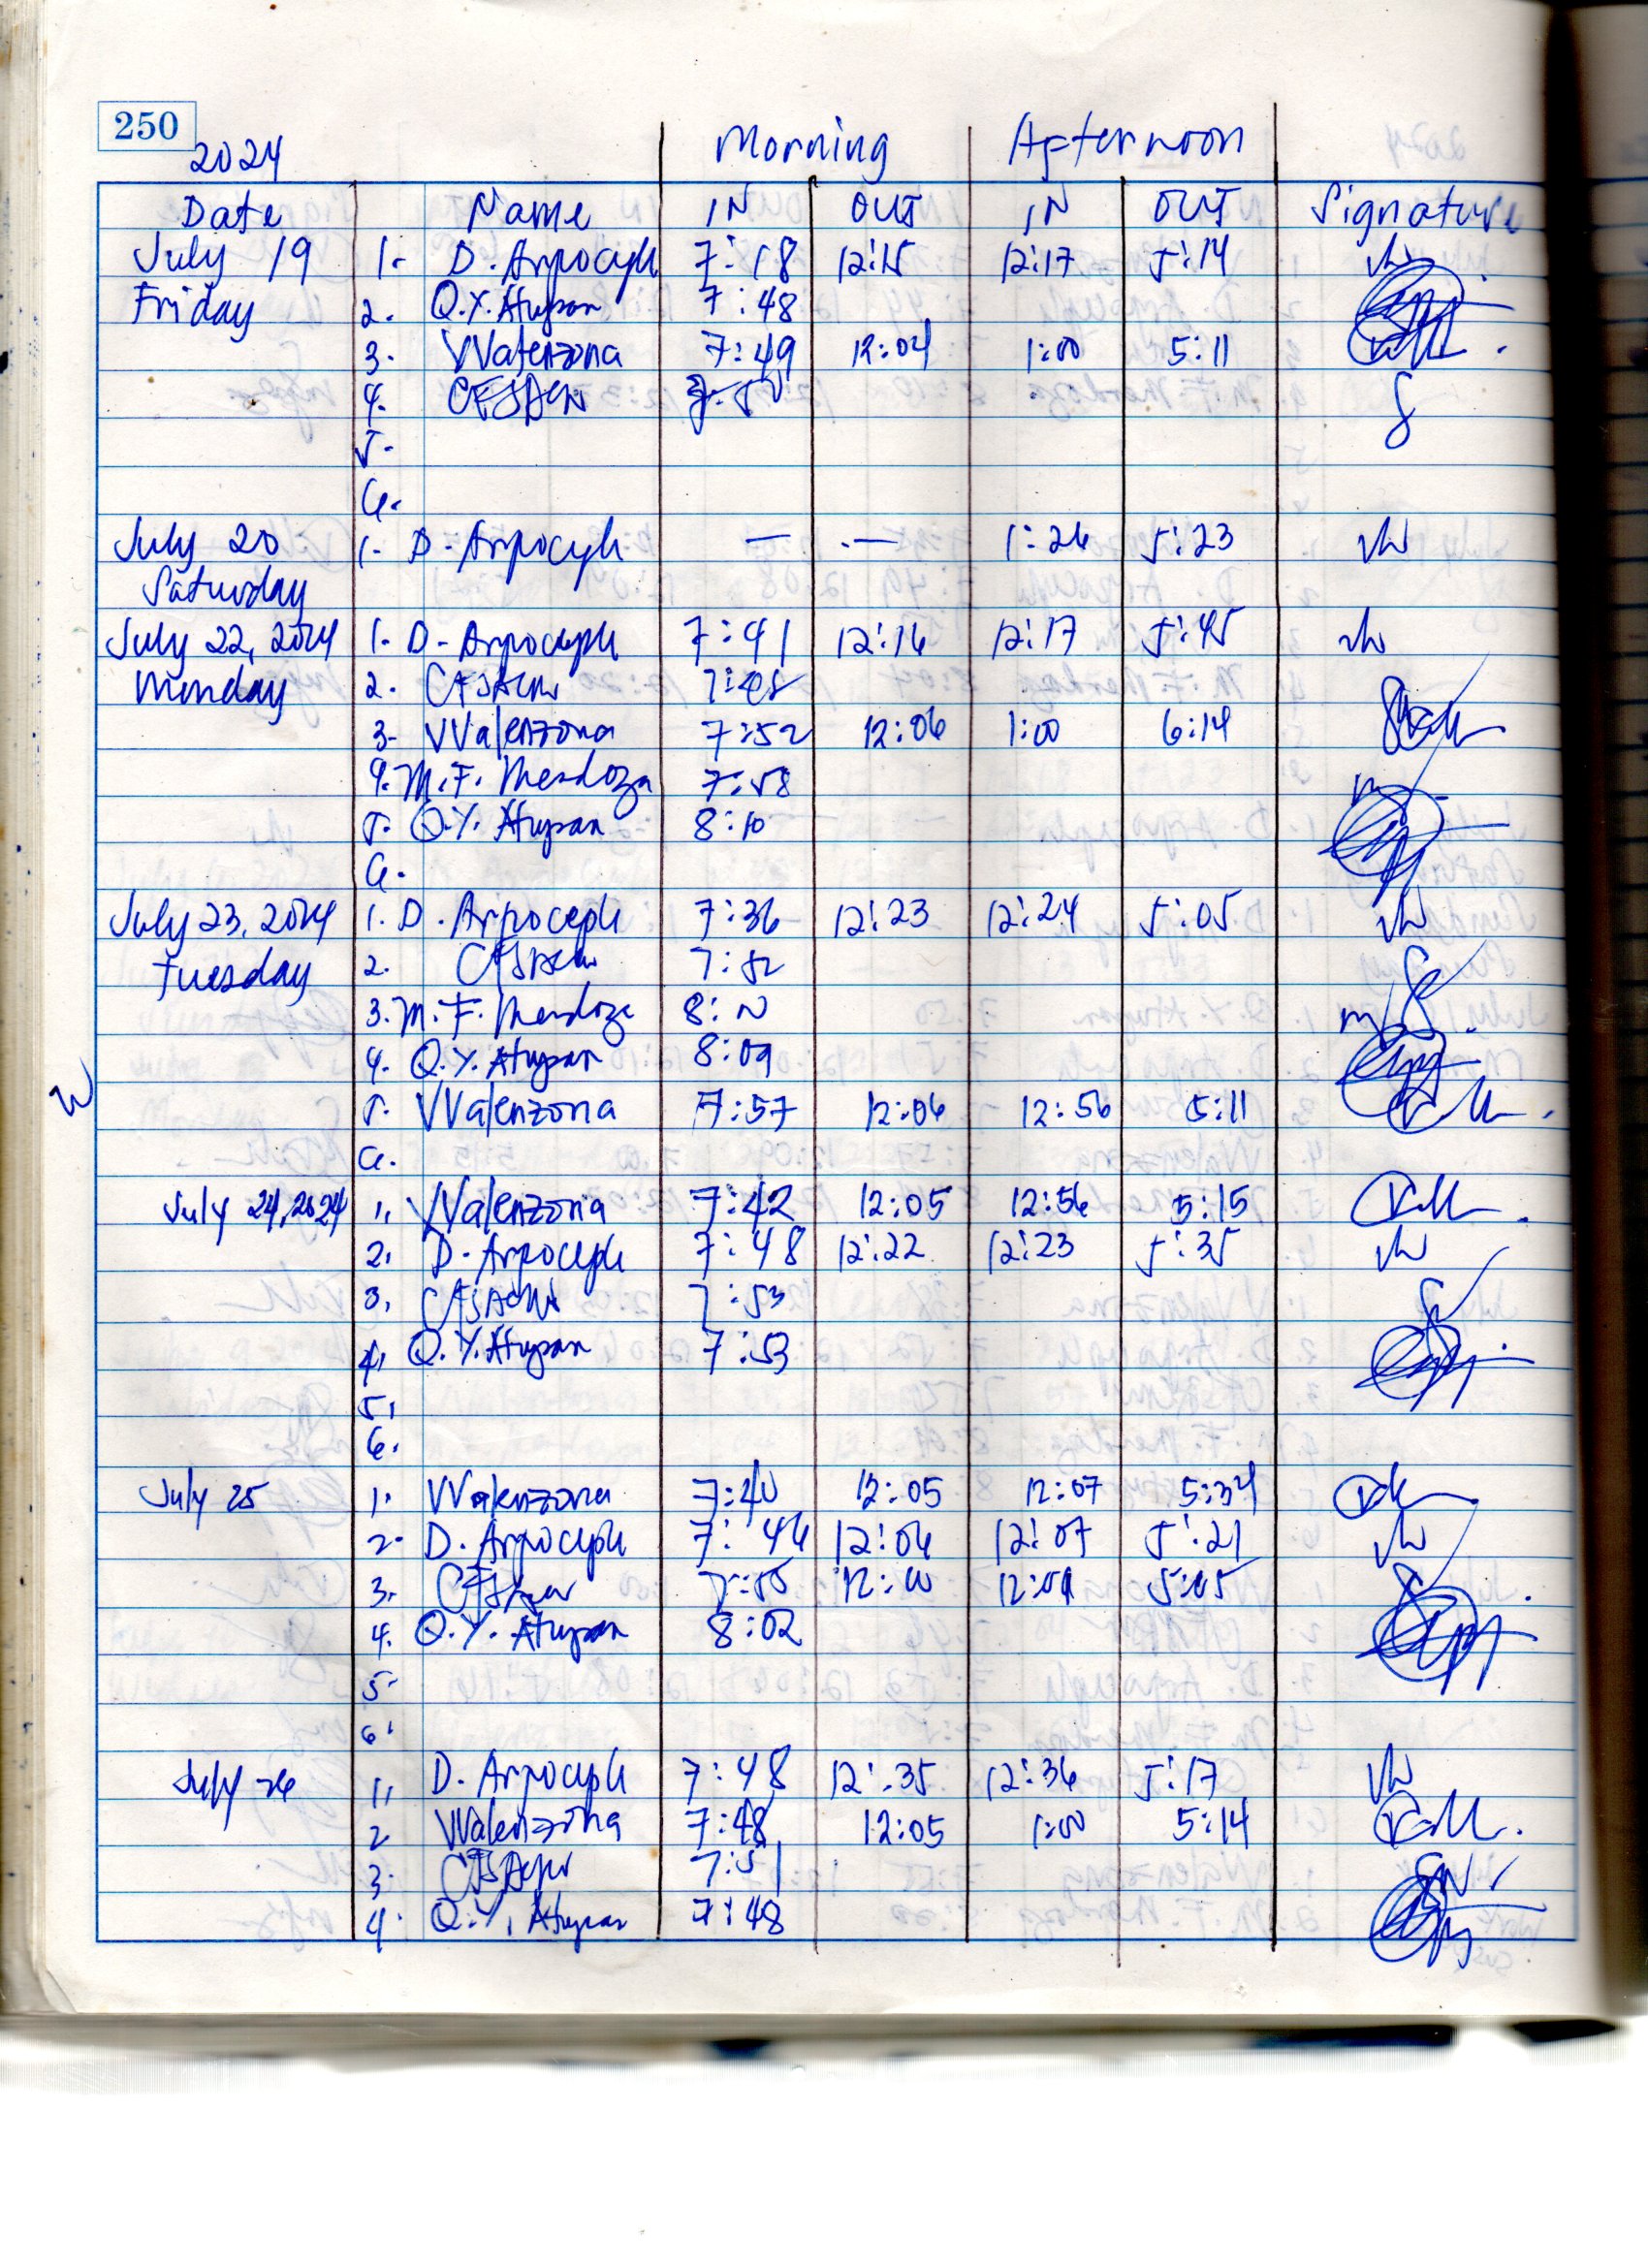 250
2024 Morning Afternoon
Date Name IN OUT IN OUT Signature
July 19 1. D. Arpoceph 7:18 12:15 12:17 5:14
Friday 2. Q.Y. Atupan 7:48
3. VValenzona 7:49 12:04 1:00 5:11
4.
5.
6.
July 20 1. D. Arpoceph — — 1:26 5:23
Saturday
July 22, 2024 1. D. Arpoceph 7:41 12:16 12:17 5:45
Monday 2. 7:48
3. VValenzona 7:52 12:06 1:00 6:14
4. M.F. Mendoza 7:58
5. Q.Y. Atupan 8:10
6.
July 23, 2024 1. D. Arpoceph 7:36 12:23 12:24 5:05
Tuesday 2. 7:52
3. M.F. Mendoza
4. Q.Y. Atupan 8:09
5. VValenzona 7:57 12:06 12:56 5:11
6.
July 24, 2024 1. VValenzona 7:42 12:05 12:56 5:15
2. D. Arpoceph 7:48 12:22 12:23 5:35
3. 7:53
4. Q.Y. Atupan 7:53
5.
6.
July 25 1. VValenzona 7:40 12:05 12:07 5:34
2. D. Arpoceph 7:46 12:06 12:07 5:21
3. 12:00 5:05
4. Q.Y. Atupan 8:02
5.
6.
July 26 1. D. Arpoceph 7:48 12:35 12:36 5:17
2 VValenzona 7:48 12:05 1:00 5:14
3. 7:51
4. Q.Y. Atupan 7:48